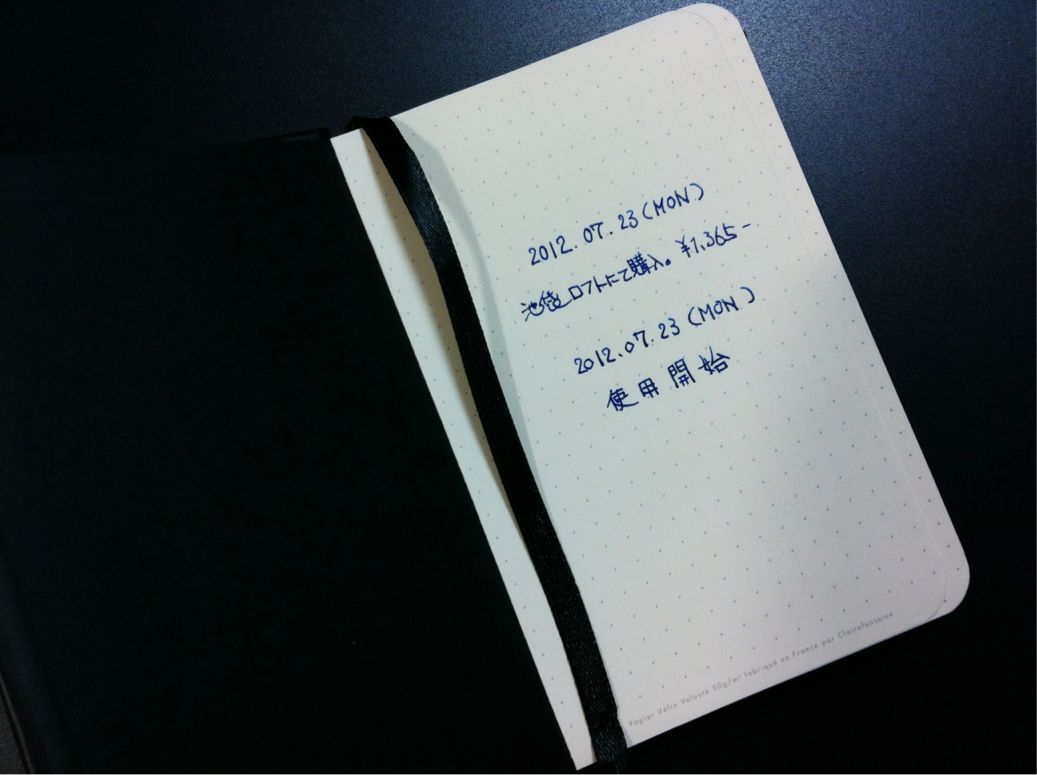 2012. 07. 23 (MON)
池袋ロフトにて購入。¥1,365-
2012.07.23 (MON)
使用開始
Papier Vélin Velouté 90g/m² fabriqué en France par Clairefontaine